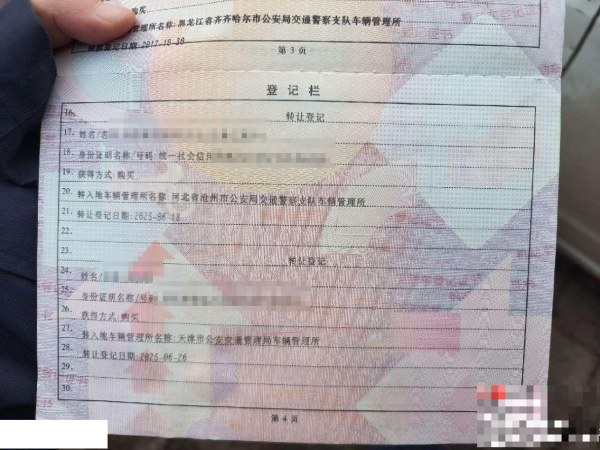 管理所名称:黑龙江省齐齐哈尔市公安局交通警察支队车辆管理所
登记日期:2017-10-30
第 3 页
登 记 栏
16.
转让登记
17. 姓名/名
18. 身份证明名称/号码 统一社会信
19. 获得方式:购买
20. 转入地车辆管理所名称:河北省沧州市公安局交通警察支队车辆管理所
21. 转让登记日期:2025-06-18
22.
23. 转让登记
24. 姓名/
25. 身份证明名称/号码
26. 获得方式:购买
27. 转入地车辆管理所名称:天津市公安交通管理局车辆管理所
28. 转让登记日期:2025-06-26
29.
30.
第 4 页